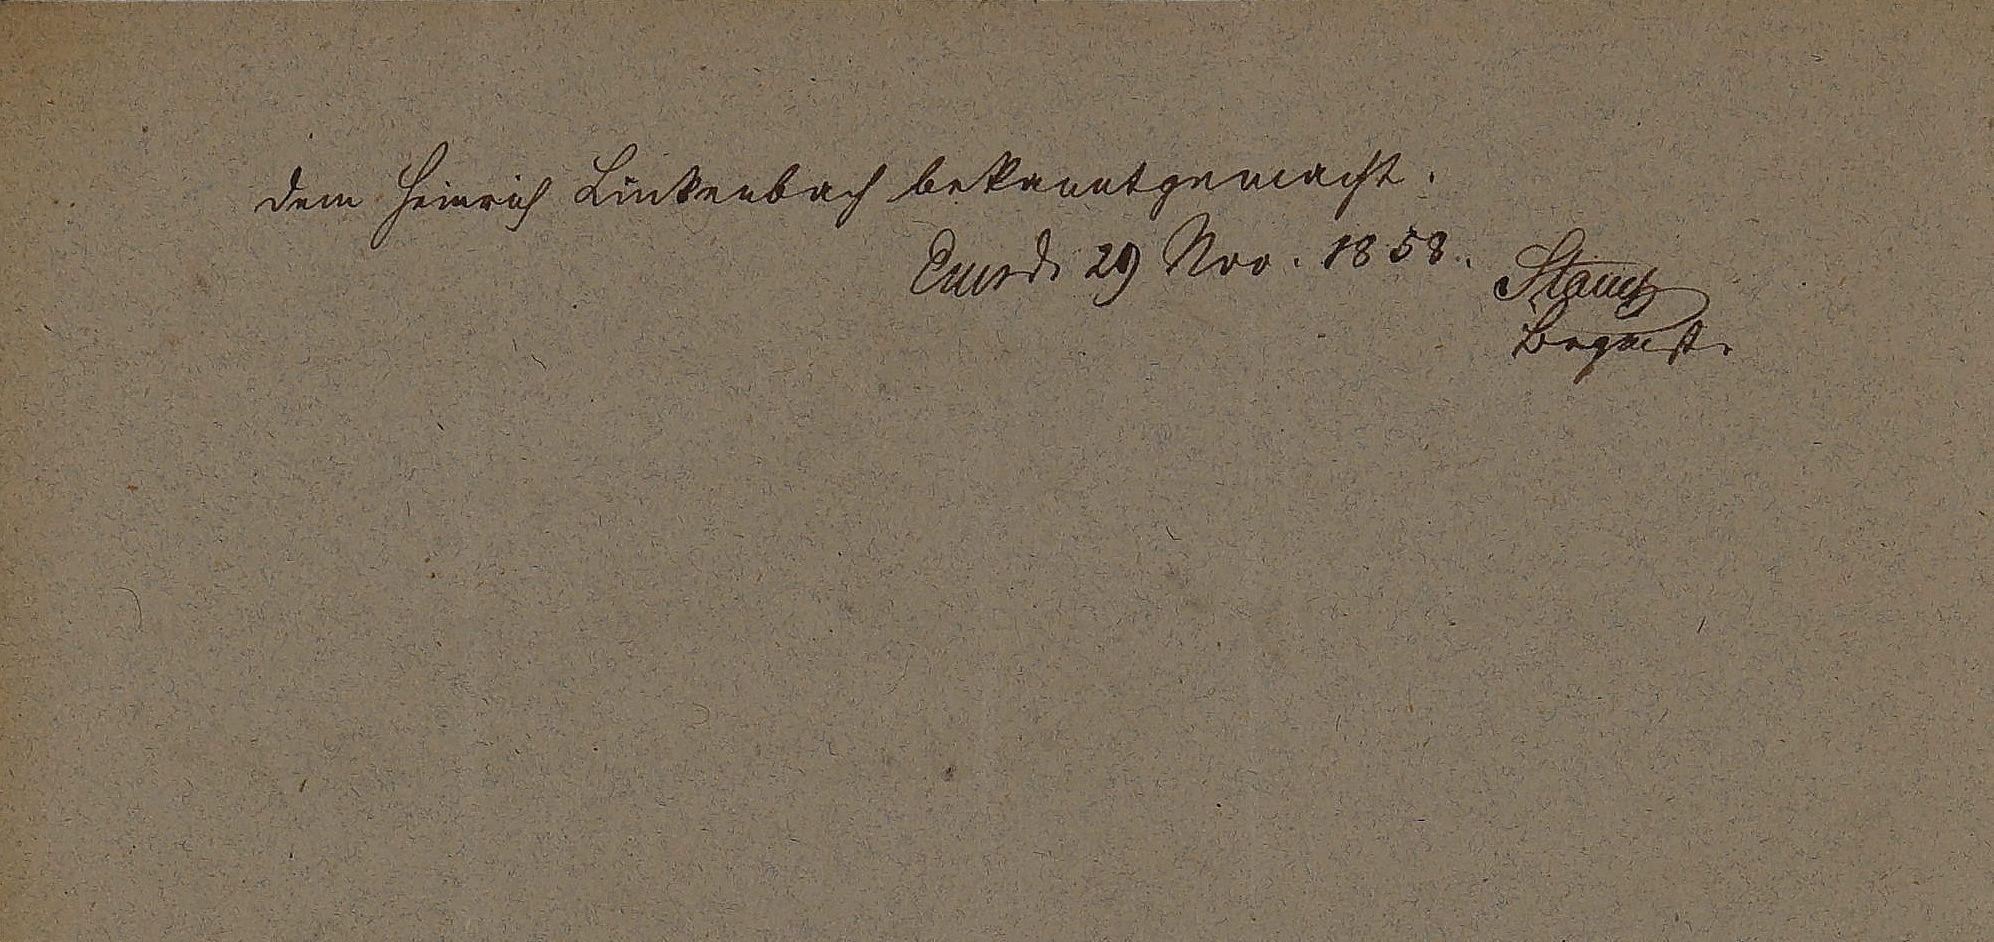 dem Heinrich Linkenbach bekanntgemacht.
Ems d. 29 Nov. 1858.
Stauch
Brgmstr